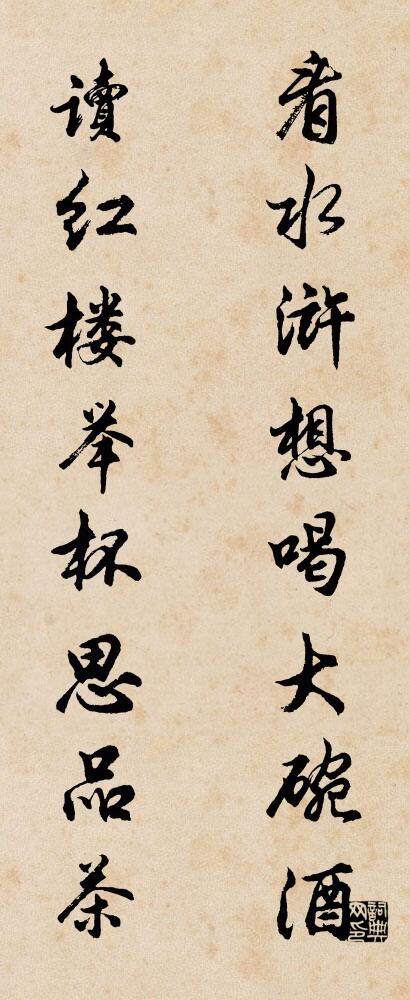 看水浒想喝大碗酒
读红楼举杯思品茶
词典网印